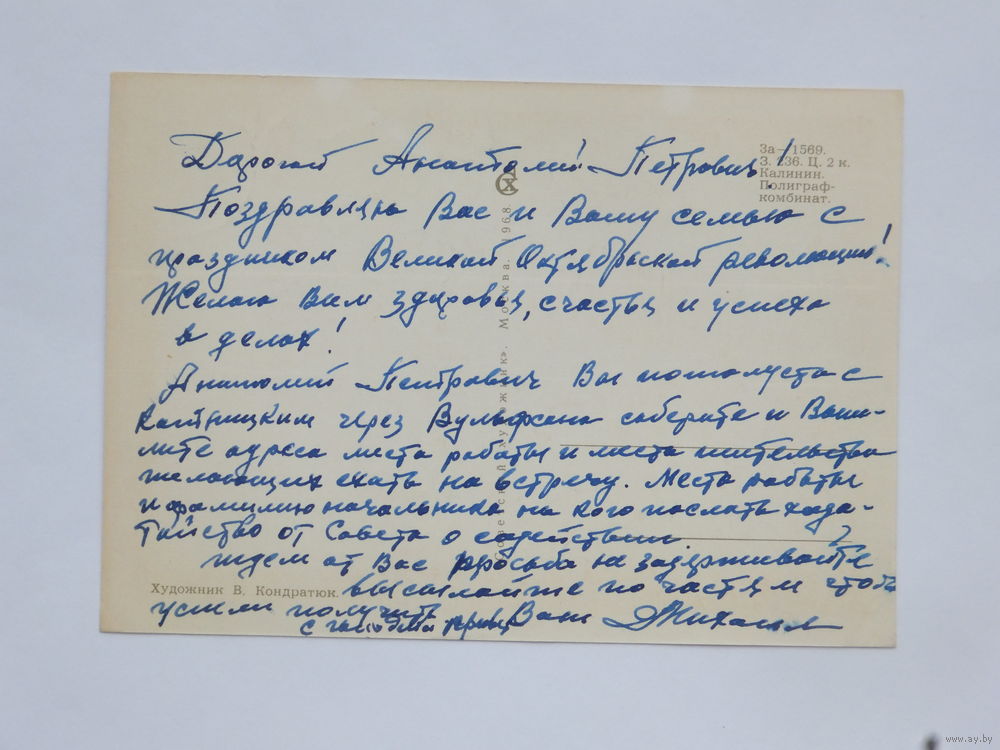 Дорогой Анатолий Петрович!
Поздравляю Вас и Вашу семью с
праздником Великой Октябрьской революции!
Желаю Вам здоровья, счастья и успеха
в делах!
Анатолий Петрович Вы пожалуста с
через Вульфсона соберите и Выш-
лите адреса места работы и места жительства
желающих ехать на встречу. Места работы
и фамилию начальника на кого послать хода-
тайство от Совета о содействии
ждем от Вас просьба не задерживайте
высылайте по частям чтобы
успели получить
Ваш Михаил
За—1569.
З. 236. Ц. 2 к.
Калинин.
Полиграф-
комбинат.
«Советский художник». Москва. 1968.
Художник В. Кондратюк.
www.ay.by